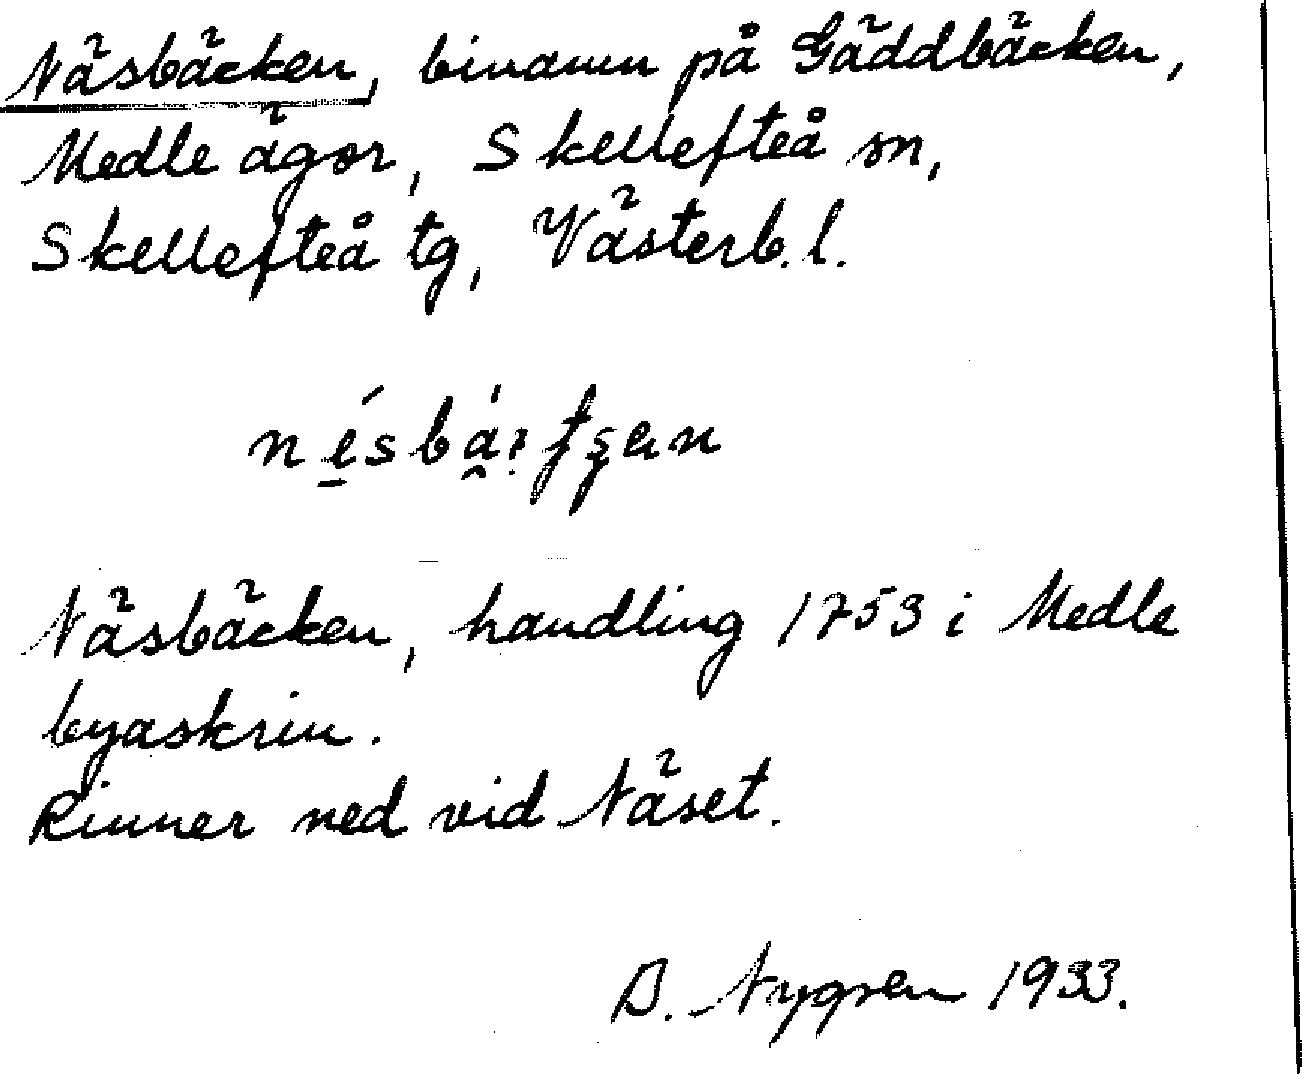 Näsbäcken, binamn på Gäddbäcken,
Medle ägor, Skellefteå sn,
Skellefteå tg, Västerb. l.
Näsbäcken, handling 1753 i Medle
byaskrin.
Rinner ned vid Näset.
D. Nygren 1933.